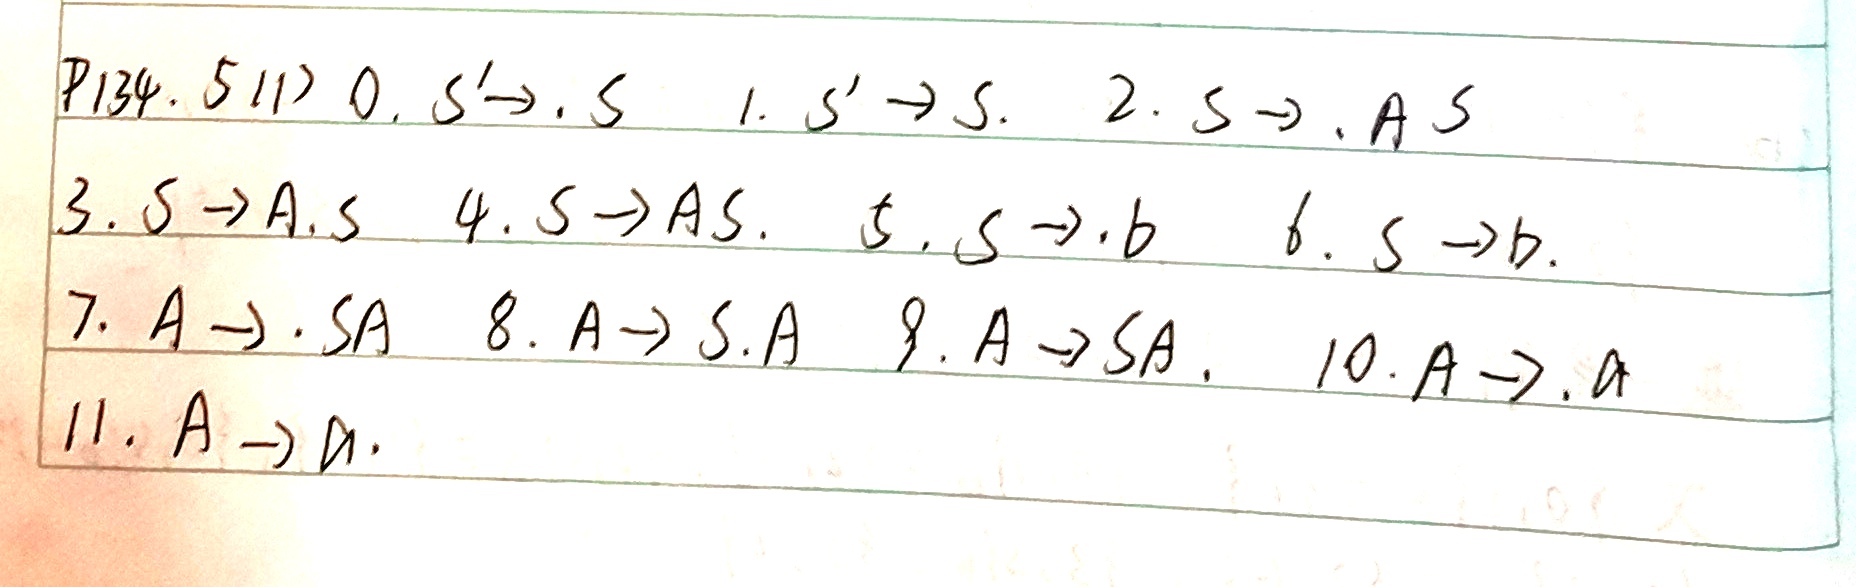 P134. 5 (1) 0. S'→.S 1. S'→S. 2. S→.AS
3. S→A.S 4. S→AS. 5. S→.b 6. S→b.
7. A→.SA 8. A→S.A 9. A→SA. 10. A→.a
11. A→a.